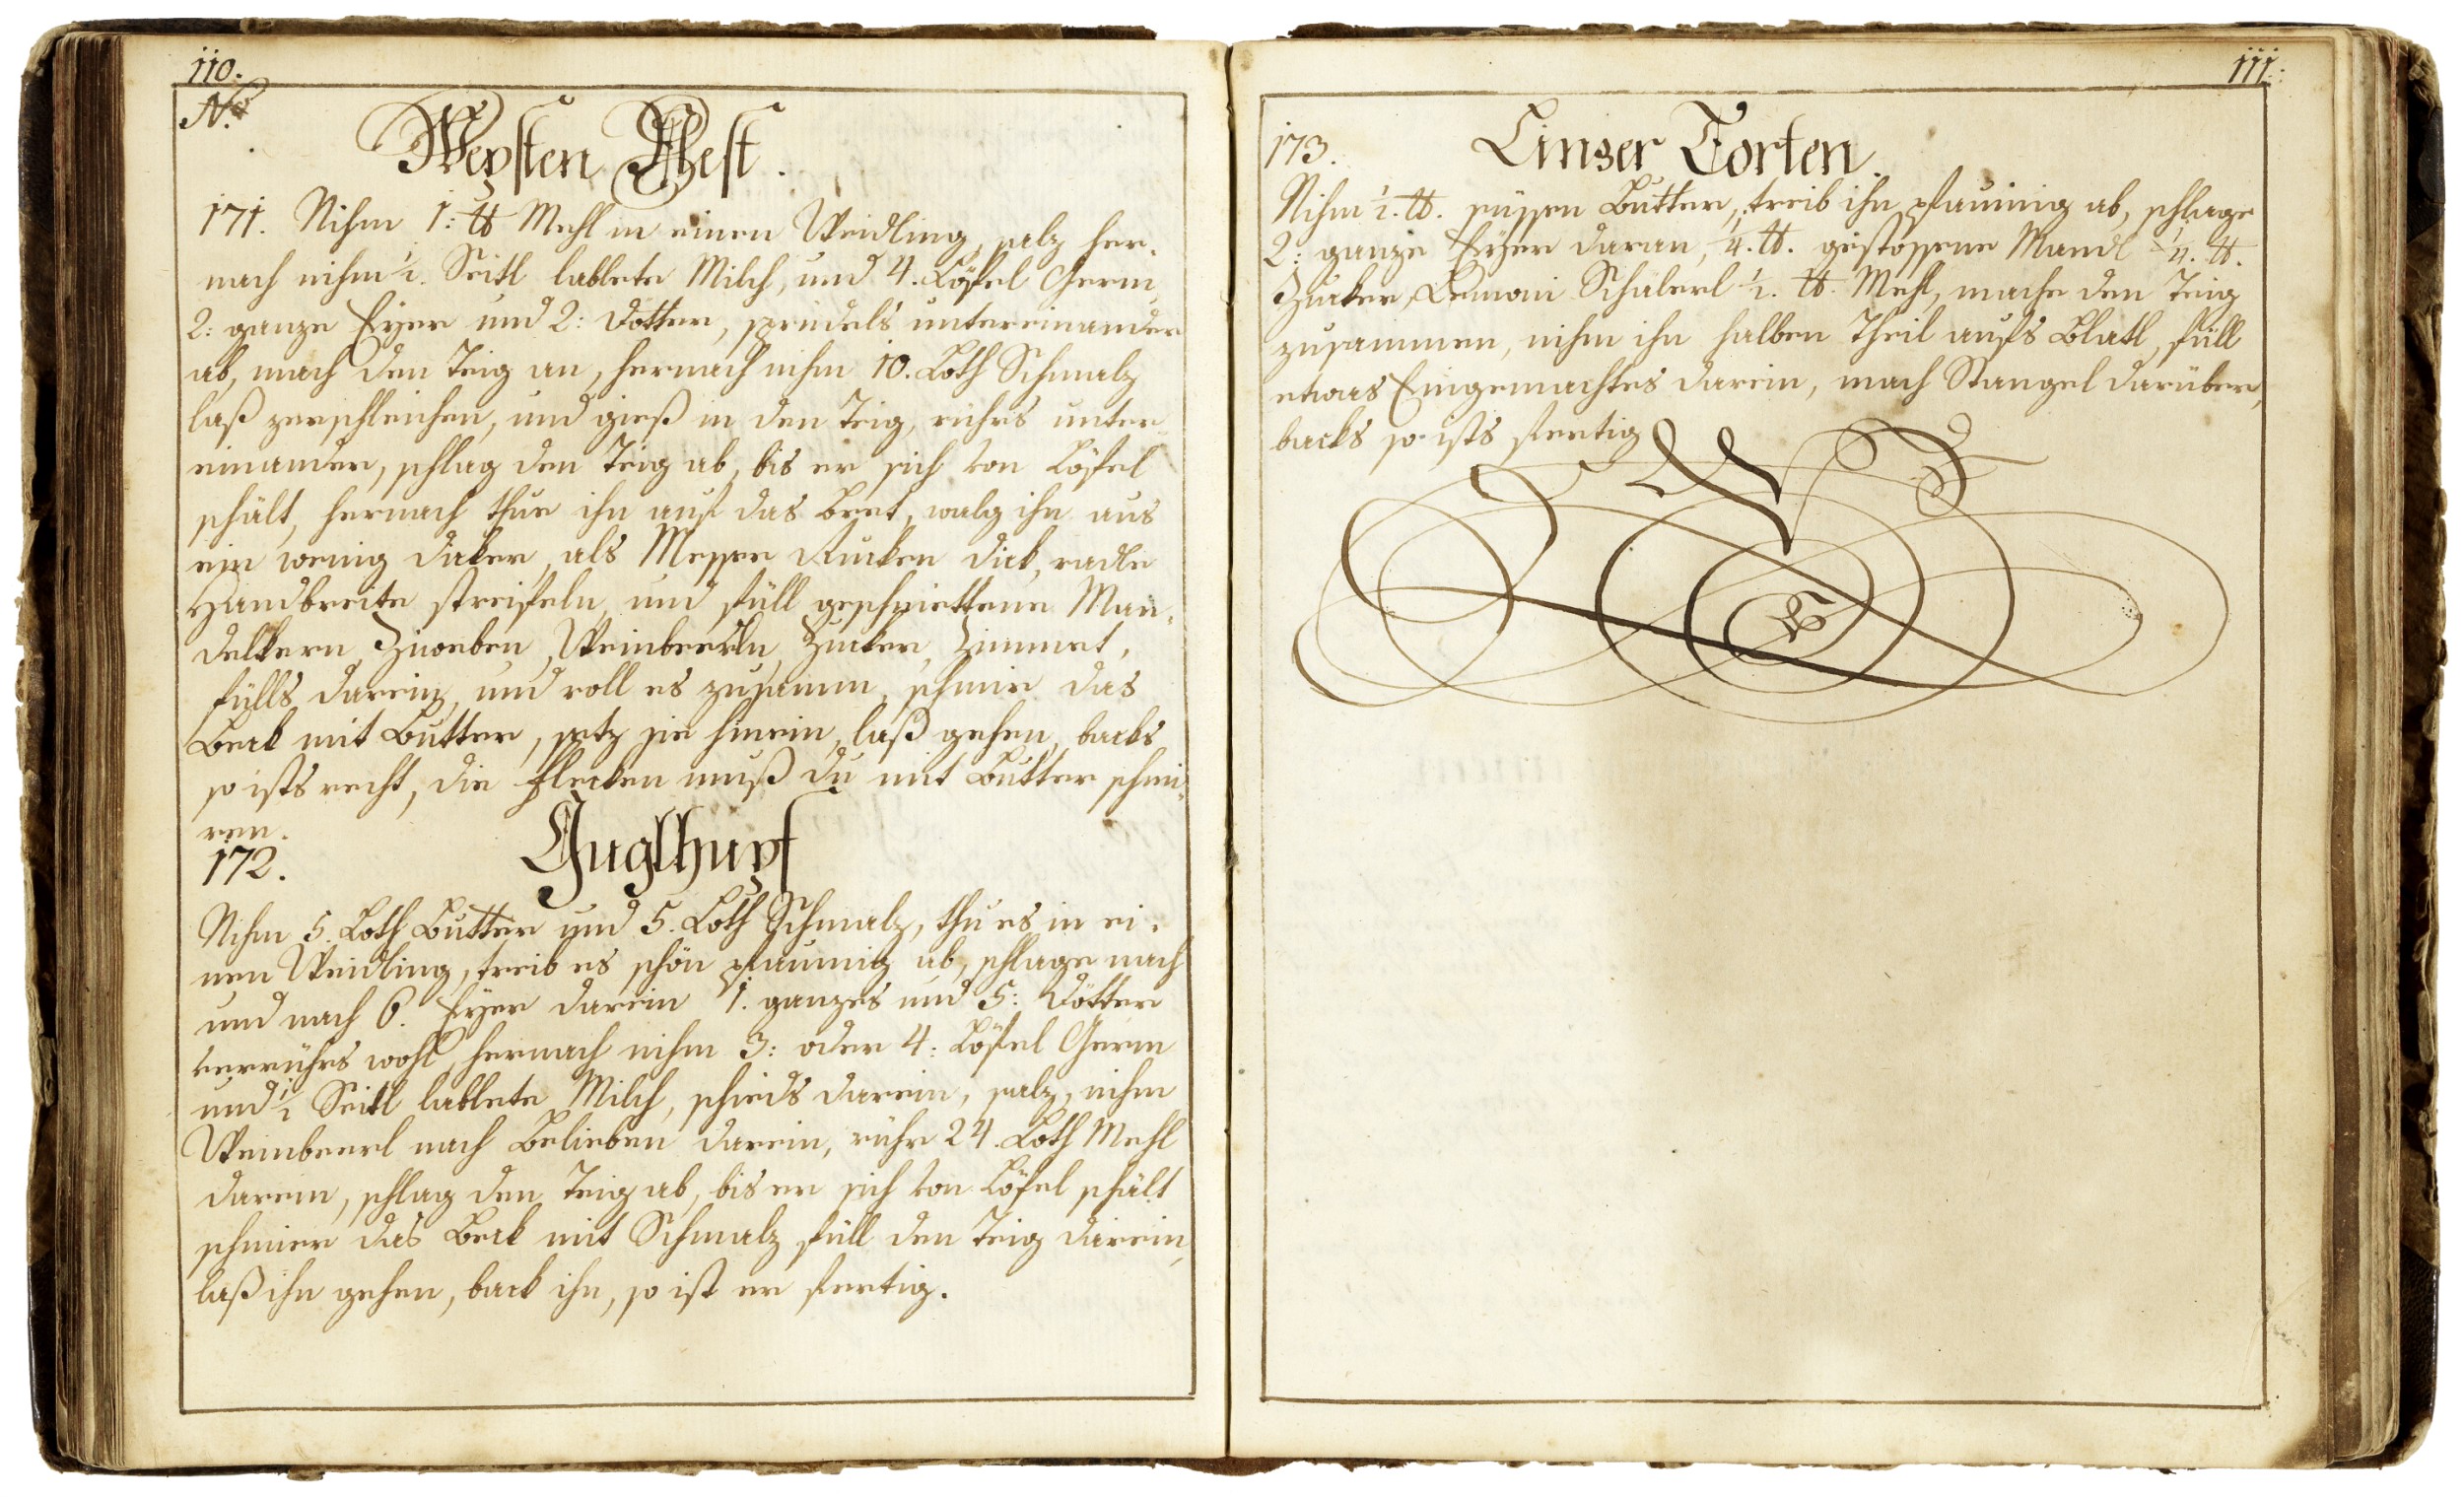 110.
No.
Wepsten Nest.
171. Nihm 1: ℔ Mehl in einen Weidling, salz her-
nach nihm ½. Seitl lablete Milch, und 4. Löffel Germ
2: ganze Eyer und 2: Dotter, sprudels untereinander
ab, mach den Teig an, hernach nihm 10. Loth Schmalz
laß zerschleichen, und gieß in den Teig, rührs unter
einander, schlag den Teig ab, bis er sich von Löffel
schält, hernach thue ihn auf das Bret, walg ihn aus
ein wenig dicker, als Messer Rucken dick, radle
Handbreite streifeln, und füll geschniettene Man-
delkern Ziweben, Weinbeerln, Zucker, Zimmet,
fülls darein, und roll es zusamm, schmir das
Beck mit Butter, setz sie hinein, laß gehen, backs
so ists recht, die Flecken muß du mit Butter schmi-
ren.
172.
Guglhupf
Nihm 5. Loth Butter und 5. Loth Schmalz, thu es in ei-
nen Weidling, treib es schön pflaumig ab, schlage nach
und nach 6. Eyer darein 1. ganzes und 5: Dötter
verrührs wohl, hernach nihm 3: oder 4: Löffel Germ
und ½ Seitl lablete Milch, schieds darein, salz, nihm
Weinbeerl nach Belieben darein, rühr 24. Loth Mehl
darein, schlag den Teig ab, bis er sich von Löfel schält
schmier das Beck mit Schmalz füll den Teig darein,
laß ihn gehen, back ihn, so ist er fertig.
111.
173.
Linzer Torten.
Nihm ½. ℔. süssen Butter, treib ihn pflaumig ab, schlage
2: ganze Eyer daran, ¼. ℔. gestossene Mandl ¼. ℔.
Zucker, Lemoni Schalerl ½. ℔. Mehl, mache den Teig
zusammen, nihm ihn halben Theil aufs Blatl, füll
etwas Eingemachtes darein, mach Stangel darüber,
backs so ists fertig